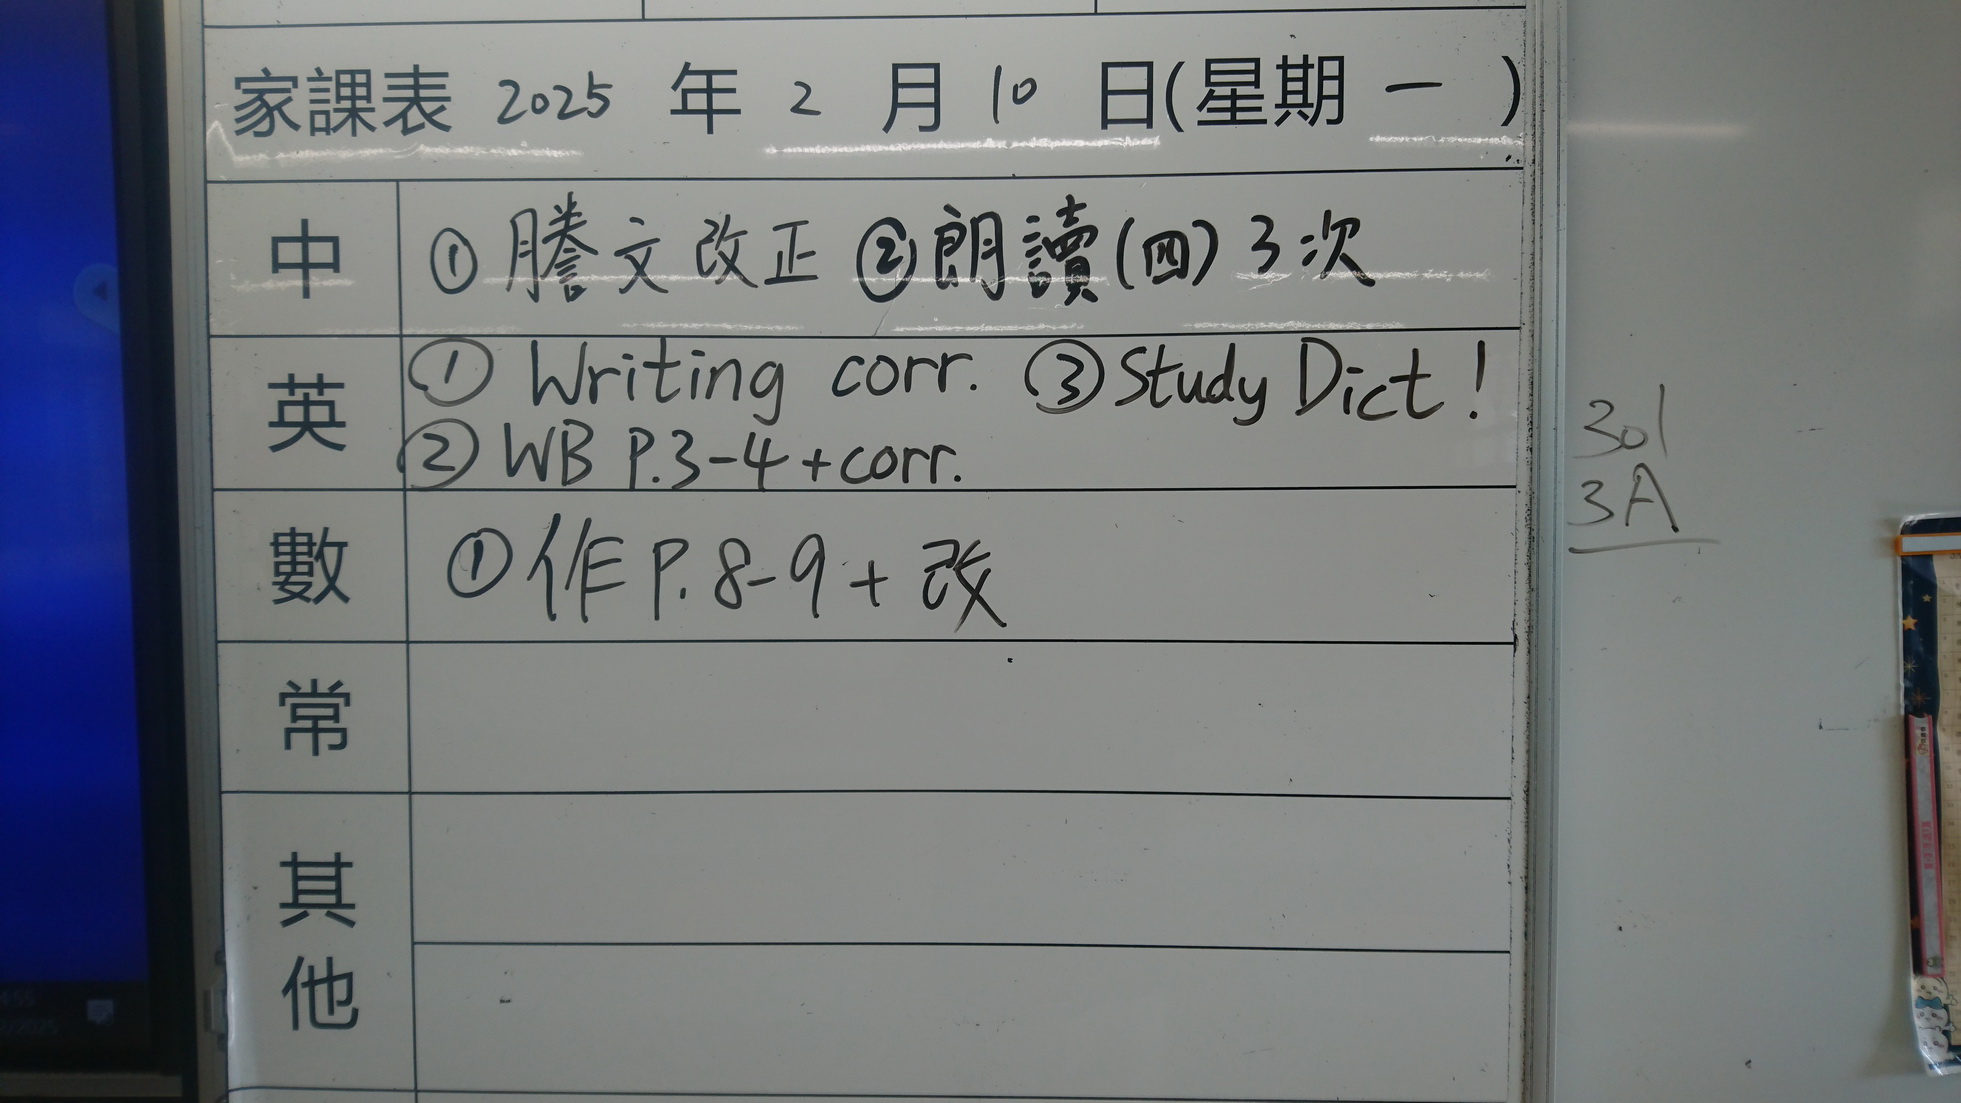 家課表 2025 年 2 月 10 日(星期 一 )
中 ① 謄文改正 ② 朗讀(四) 3次
英 ① Writing corr. ③ Study Dict!
② WB P.3-4 + corr.
數 ① 作 P.8-9 + 改
常
其他
301
3A